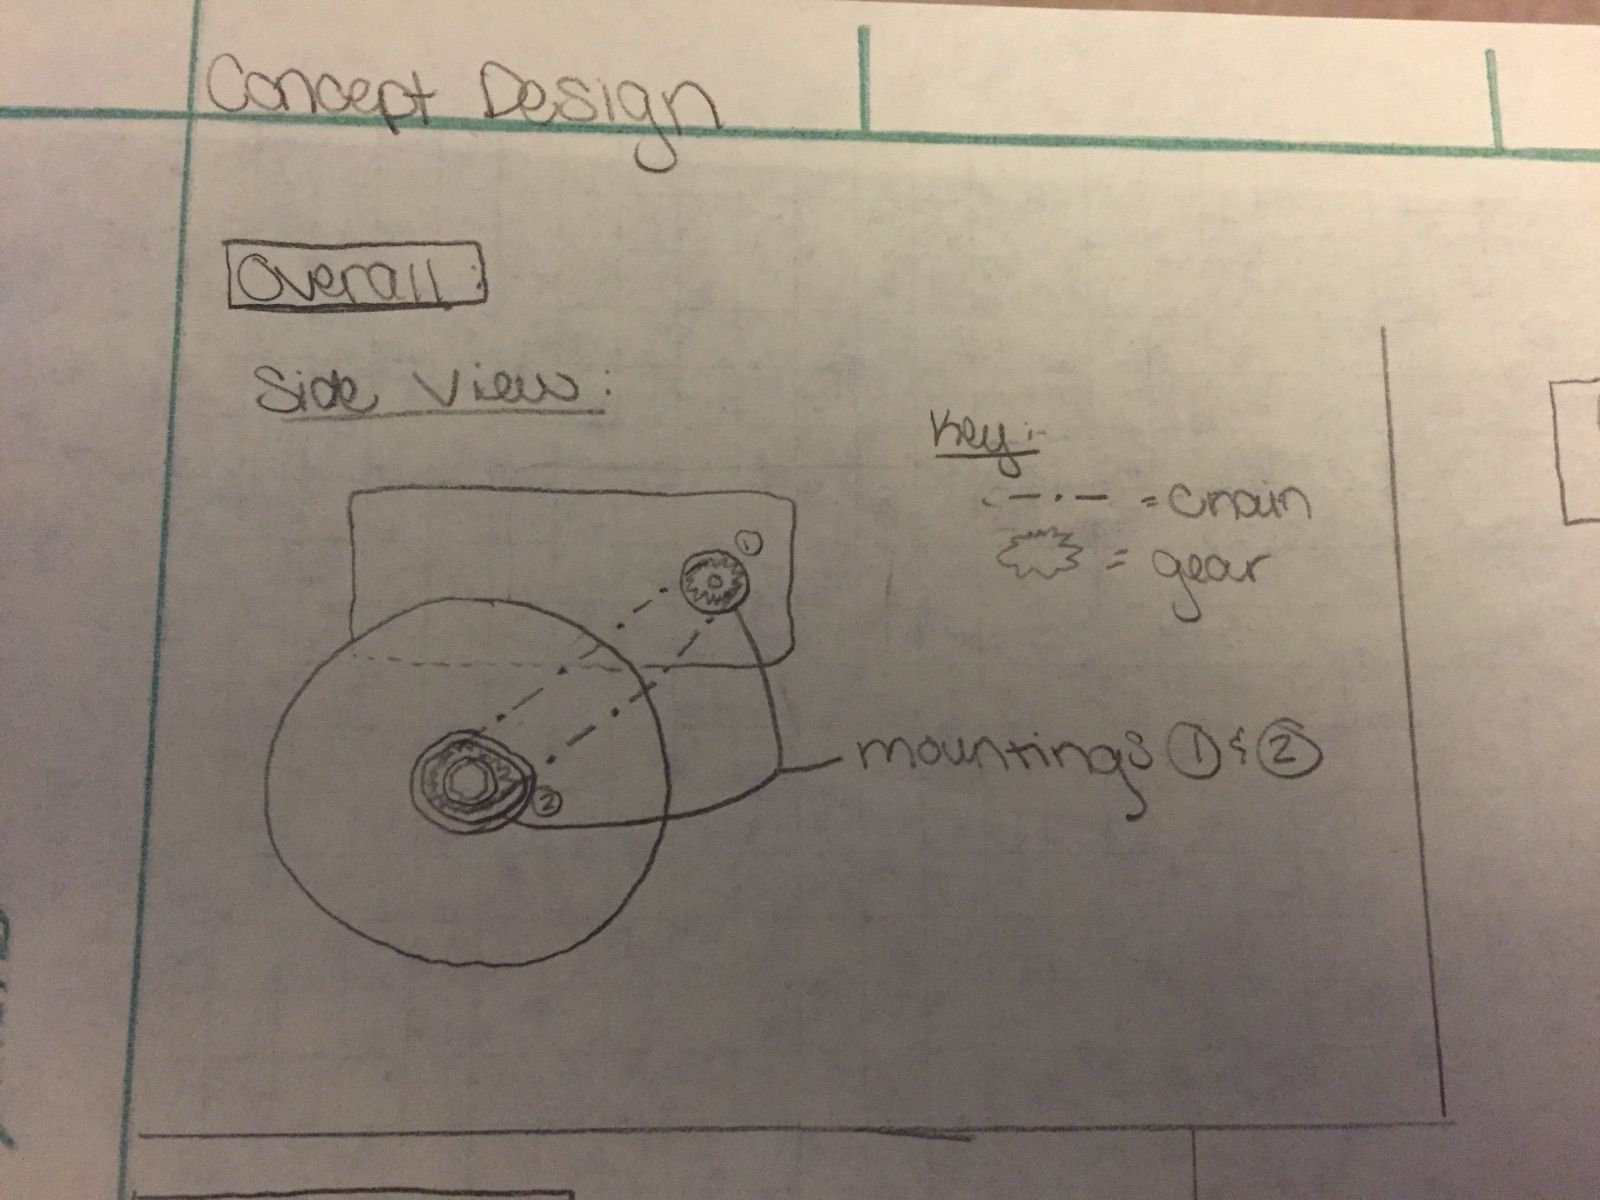 Concept Design
Overall:
Side View:
Key:
= chain
= gear
①
②
mountings ① & ②